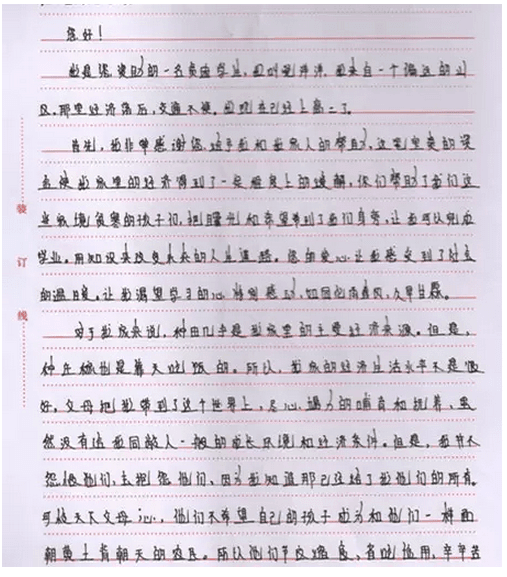 您好！
我是您资助的一名贫困学生，我叫 来自一个偏远的山
区，那里经济落后，交通不便。我现在已经上高二了。
首先，我非常感谢您给予我和我家人的帮助，这笔宝贵的资
金使我家里的经济得到了一定程度上的缓解，你们帮助了我们这
些家境贫寒的孩子们，把曙光和希望带到了我们身旁，让我可以完成
学业。用知识来改变未来的人生道路。您的爱心，让我感受到了社会
的温暖。让我渴望学习的心特别感动，如同沐南春风，久旱甘霖。
对于我家来说，种田几乎是我家里的主要经济来源。但是，
种庄稼也是靠天吃饭的。所以，我家的经济生活水平不是很
好。父母把我带到了这个世界上，尽心竭力的哺育和抚养，虽
然没有给我同龄人一般的成长环境和经济条件。但是，我并不
怨恨他们，去抱怨他们，因为我知道那已经给了我他们的所有。
可怜天下父母心，他们不希望自己的孩子成为和他们一样面
朝黄土背朝天的农民。所以他们节衣缩食，省吃俭用，辛辛苦
装
订
线